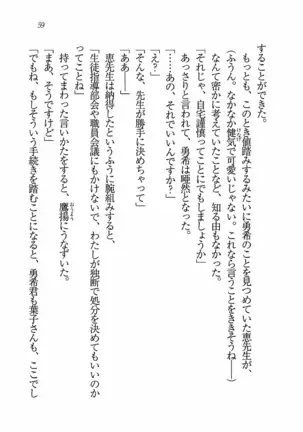 することができた。
もっとも、このとき値踏みするみたいに勇希のことを見つめていた恵先生が、
（ふうん。なかなか健気で可愛いじゃない。これなら言うことをききそうね――）
なんて密かに考えていたことなど、知る由もなかった。
「それじゃ、自宅謹慎ってことにでもしましょうか」
あっさりと言われて、勇希は唖然となった。
「……あの、それでいいんですか？」
「え？」
「そんな、先生が勝手に決めちゃって」
「ああ――」
恵先生は納得したというふうに腕組みすると、
「生徒指導部会や職員会議にもかけないで、わたしが独断で処分を決めてもいいのか
ってことね」
持ってまわった言いかたをすると、鷹揚にうなずいた。
「まあ、そうですけど」
「でもね、もしそういう手続きを踏むことになると、勇希君も葉子さんも、ここでし
けなげ
おうよう
59